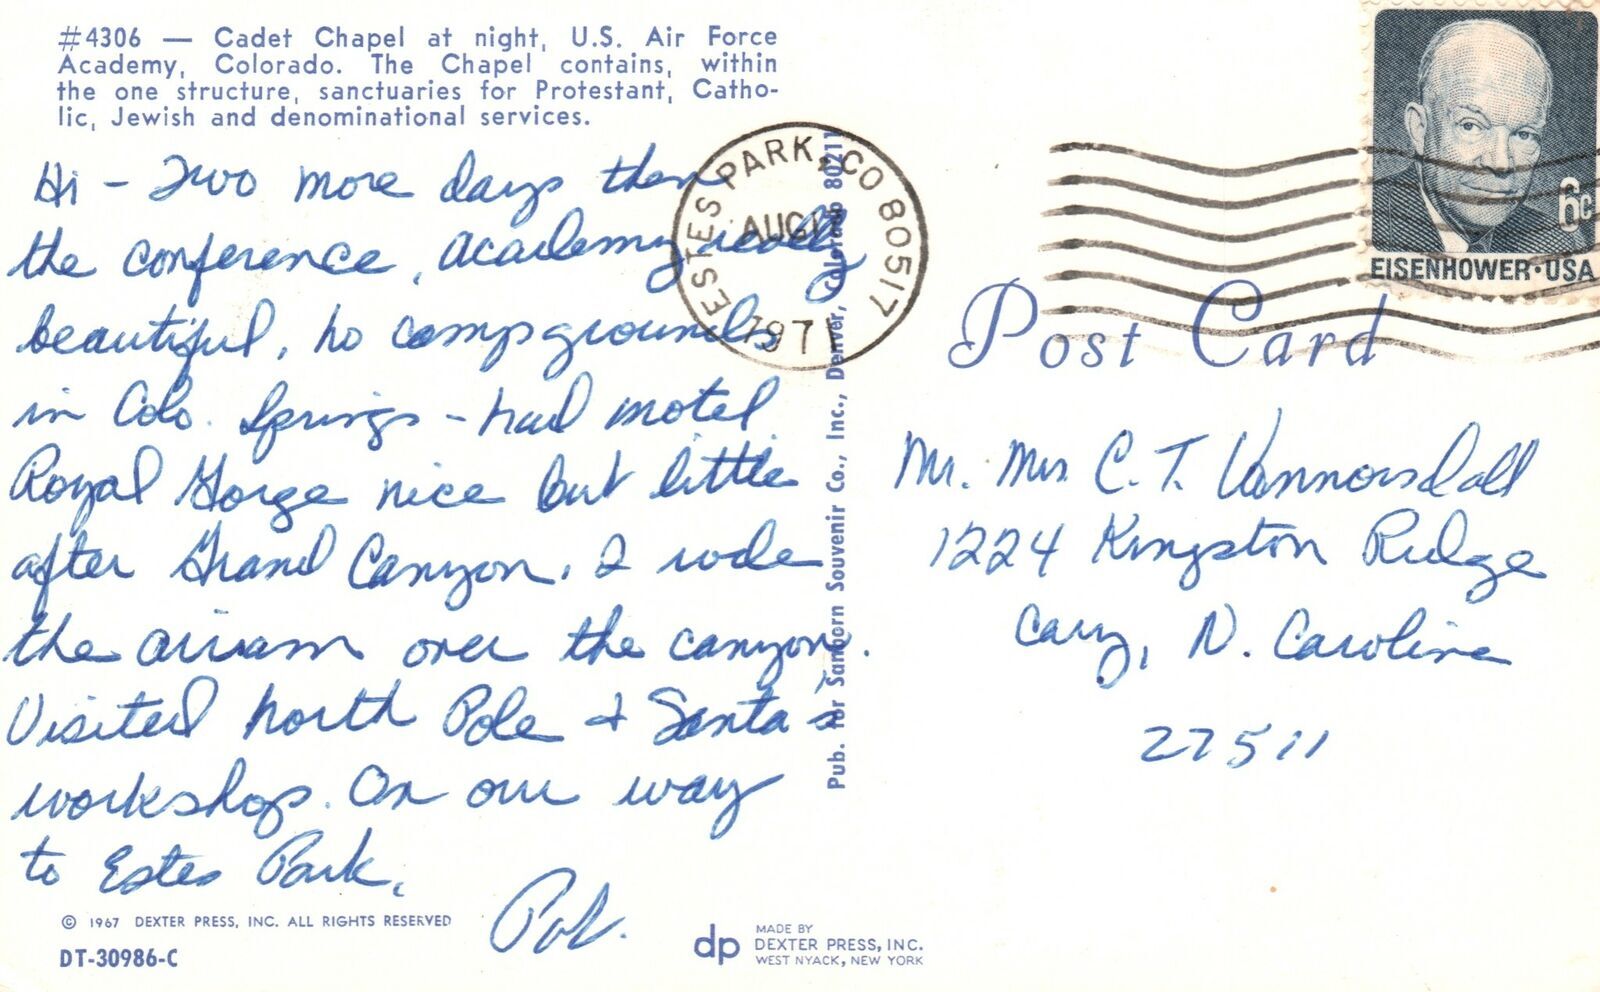 #4306 — Cadet Chapel at night, U.S. Air Force
Academy, Colorado. The Chapel contains, within
the one structure, sanctuaries for Protestant, Catho-
lic, Jewish and denominational services.
Hi - Two more days then
the conference. Academy really
beautiful, no campgrounds
in Colo. Springs - had motel
Royal Gorge nice but little
after Grand Canyon. I rode
the airram over the canyon.
Visited North Pole & Santa's
workshop. On our way
to Estes Park.
© 1967 DEXTER PRESS, INC. ALL RIGHTS RESERVED
DT-30986-C
Pub. for Sanborn Souvenir Co., Inc., Denver, Colorado 80211
dp
MADE BY
DEXTER PRESS, INC.
WEST NYACK, NEW YORK
ESTES PARK, CO 80517
AUG
1971
6c
EISENHOWER·USA
Post Card
Mr. Mrs C. T. Vannorsdall
1224 Kingston Ridge
Cary, N. Carolina
27511